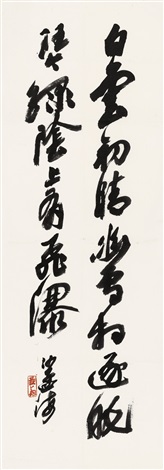 白雲初晴幽鳥相逐眠
琴綠陰上有飛瀑